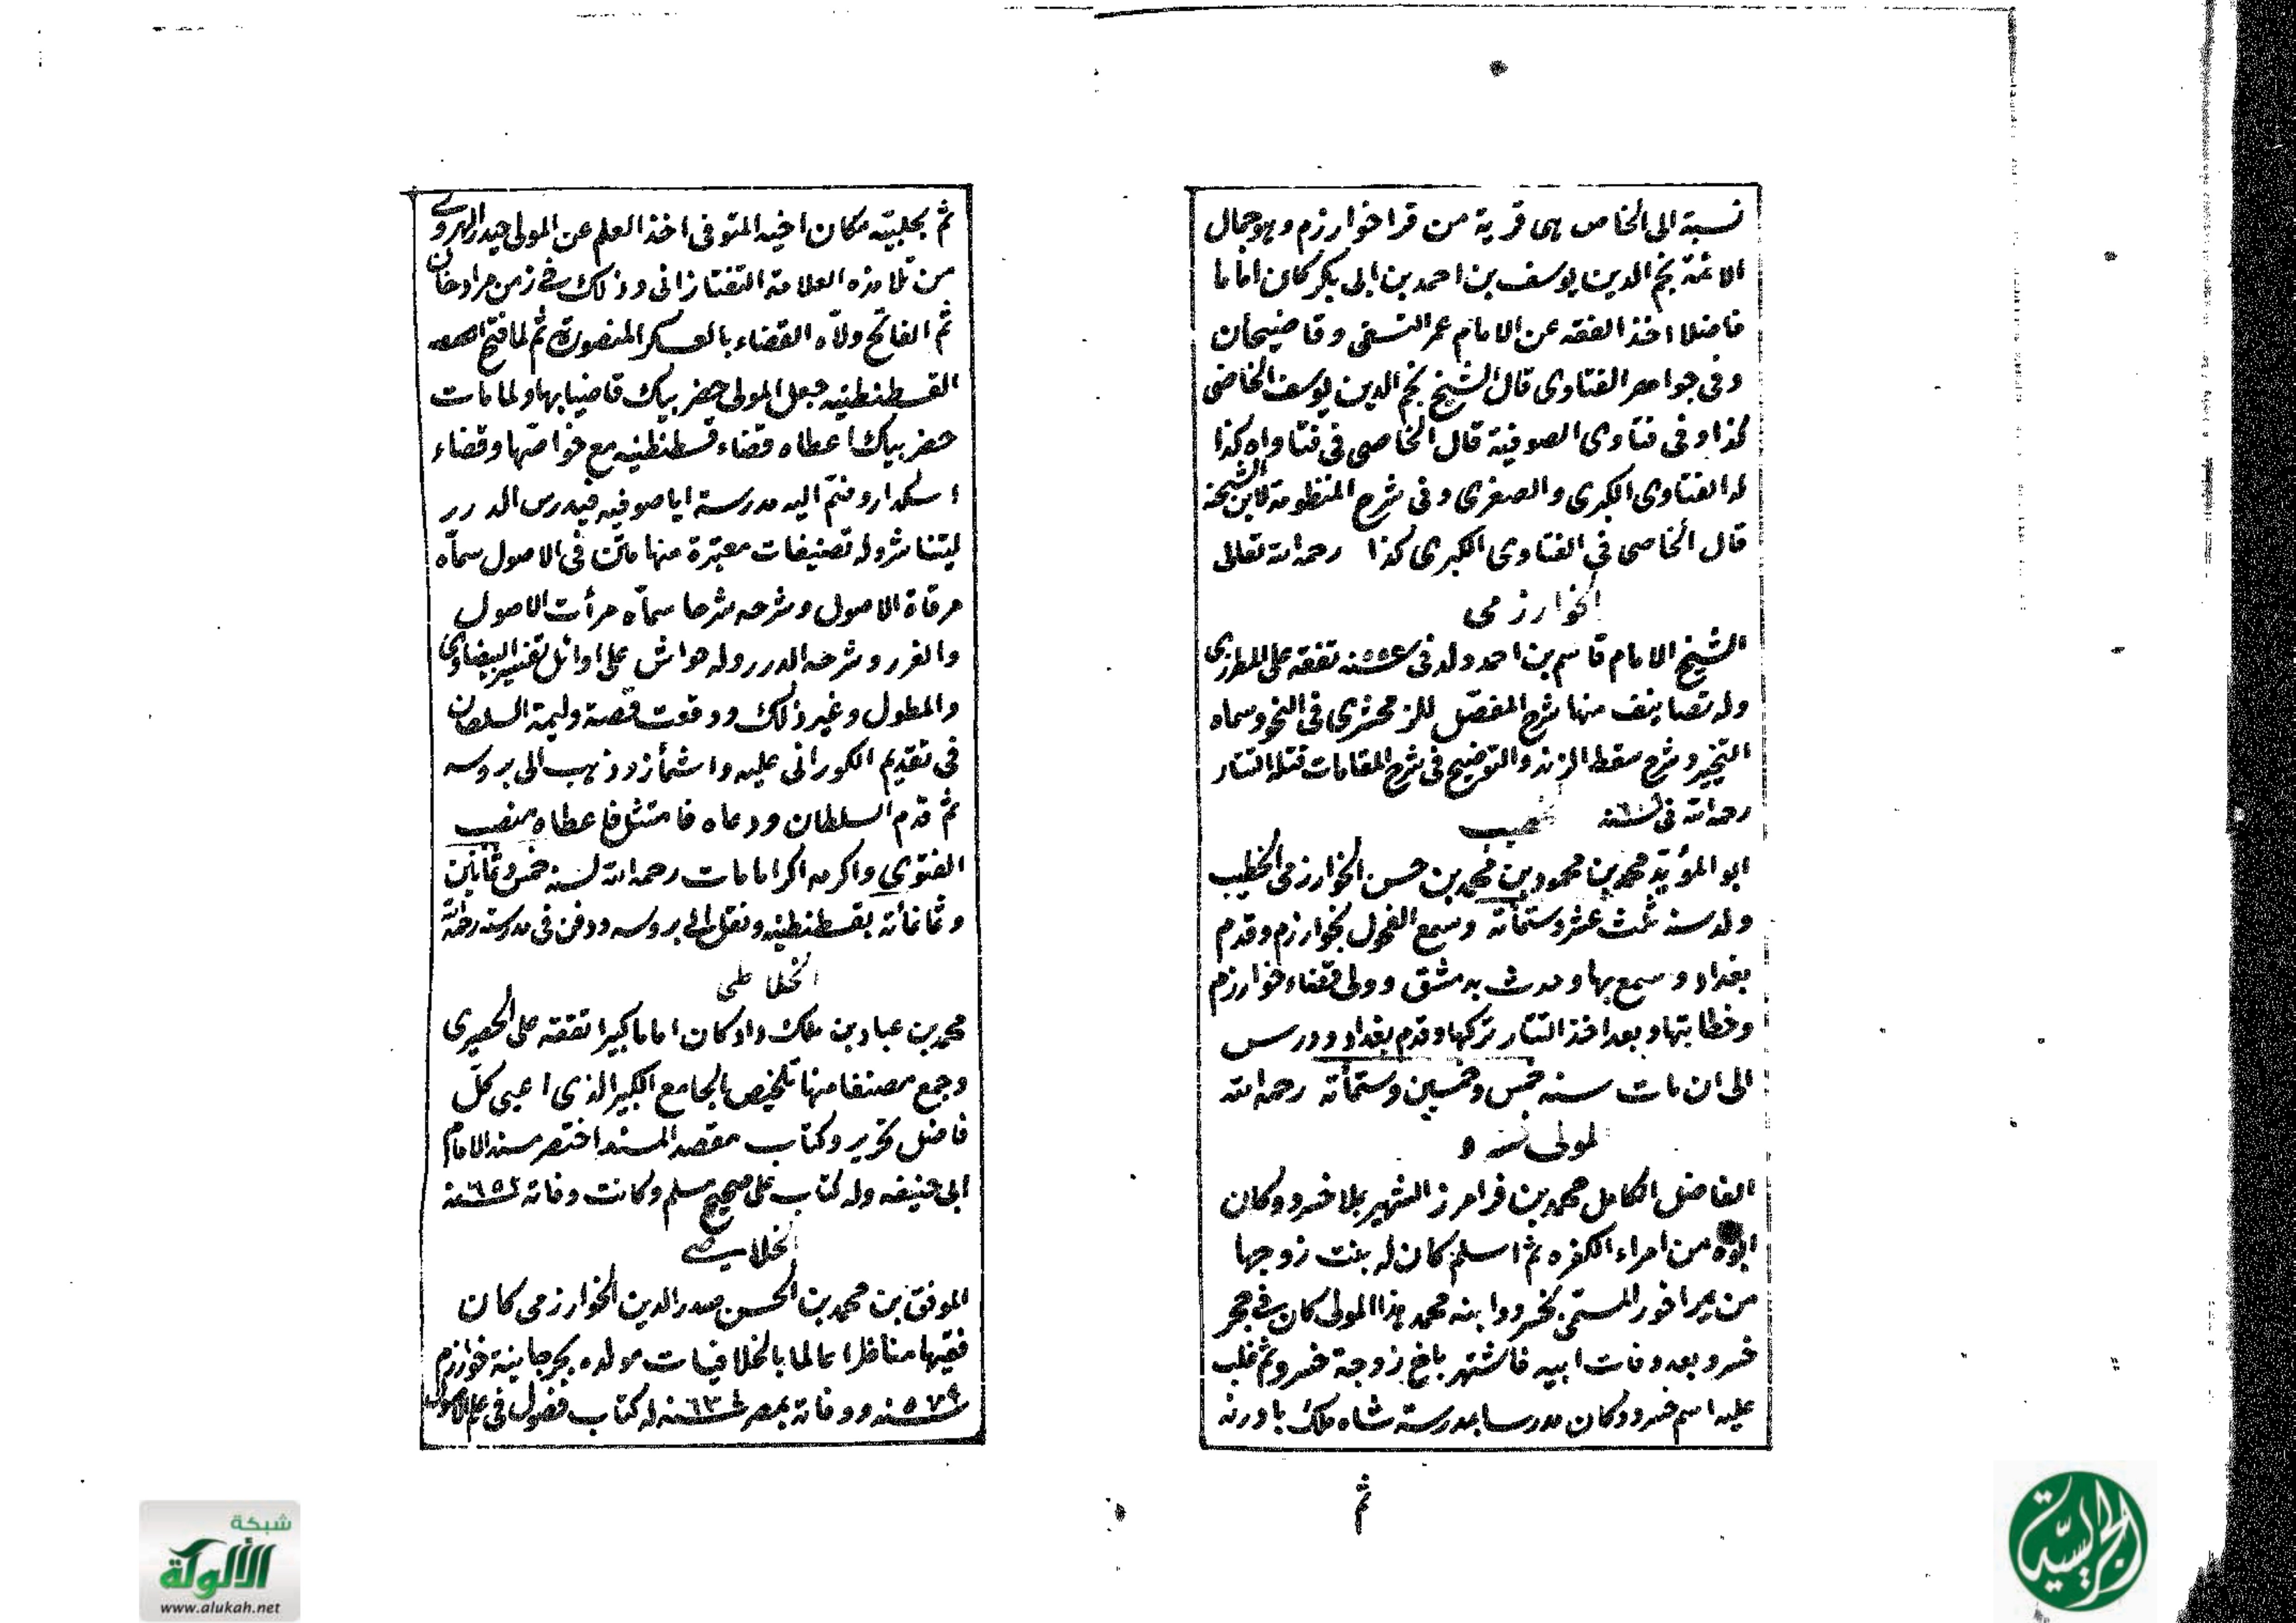 نسبة الى الخاص هى قرية من قرا خوارزم وهو جمال
الائمة نجم الدين يوسف بن احمد بن ابى بكر كان اماما
فاضلا اخذ الفقه عن الامام عمر النسفى وقاضيخان
وفى جواهر الفتاوى قال الشيخ نجم الدين يوسف الخاصى
كذا وفى فتاوى الصوفية قال الخاصى فى فتاواه كذا
له الفتاوى الكبرى والصغرى وفى شرح المنظومة لابن الشحنة
قال الخاصى فى الفتاوى الكبرى كذا رحمه الله تعالى
الخوارزمى
الشيخ الامام قاسم بن احمد ولد فى سنه تفقه على المطرزى
وله تصانيف منها شرح المفصل للزمخشرى فى النحو وسماه
التخير وشرح سقط الزند والتوضيح فى شرح المقامات قتله التتار
رحمه الله فى سنه
ابو المؤيد محمد بن محمود بن محمد بن حسن الخوارزمى الخطيب
ولد سنه ثلث عشر وستمأته وسمع الفحول بخوارزم وقدم
بغداد وسمع بها وحدث بدمشق وولى قضاء خوارزم
وخطابتها وبعد اخذ التتار تركها وقدم بغداد ودرس
الى ان مات سنه خمس وخمسين وستمأته رحمه الله
لمولى خسرو
الفاضل الكامل محمد بن فرامرز الشهير بملا خسرو وكان
ابوه من امراء الكفره ثم اسلم كان له بنت زوجها
من ميراخور المسمى بخسرو وابنه محمد هذا المولى كان فى حجر
خسرو بعد وفات ابيه فاشتهر باخ زوجة خسرو ثم غلب
عليه اسم خسرو وكان مدرسا بمدرسة شاه ملك بادرنه
ثم
ثم بحلبيّه مكان اخيه المتوفى اخذ العلم عن المولى حيدر الهروى
من تلامذه العلامة التفتازانى وذلك فى زمن مراد خان
ثم الفاتح ولاّه القضاء بالعسكر المنصورة ثم لما فتح
القسطنطنيه جعل المولى حضر بيك قاضيا بها ولما مات
حضر بيك اعطاه قضاء قسطنطنيه مع خواصّها وقضاء
اسكدار وضمّ اليه مدرسة اياصوفيه فيدرس الدرر
ليتناثر وله تصنيفات معتبرة منها متن فى الاصول سمّاه
مرقاة الاصول وشرحه شرحا سمّاه مرأت الاصول
والغرر وشرحه الدرر وله حواش على اوائل تفسير البيضاوى
والمطول وغير ذلك ووقعت قصة وليمة السلطان
فى تقديم الكورانى عليه واشمأز وذهب الى بروسه
ثم قدم السلطان ودعاه فامتثل فاعطاه منصب
الفتوى واكرمه اكراما مات رحمه الله سنه خمس وثمانين
وثمانمأته بقسطنطنيه ونقل الى بروسه ودفن فى مدرسته رحمه الله
الخلاطى
محمد بن عباد بن ملك داد كان اماما كبيرا تفقه على الحصيرى
وجمع مصنفا منها تلخيص الجامع الكبير الذى اعيى كلّ
فاضل نحرير وكتاب مقصد المسند اختصر مسند الامام
ابى حنيفه وله كتاب على صحيح مسلم وكانت وفاته ٦٥٢ سنه
الموفق بن محمد بن الحسن صدر الدين الخوارزمى كان
فقيها مناظرا عالما بالخلافيات مولده بجرجانية خوارزم
٥٧٩ سنه ووفاته بمصر سنه له كتاب فصول فى علم الاصول
شبكة
الألوكة
www.alukah.net